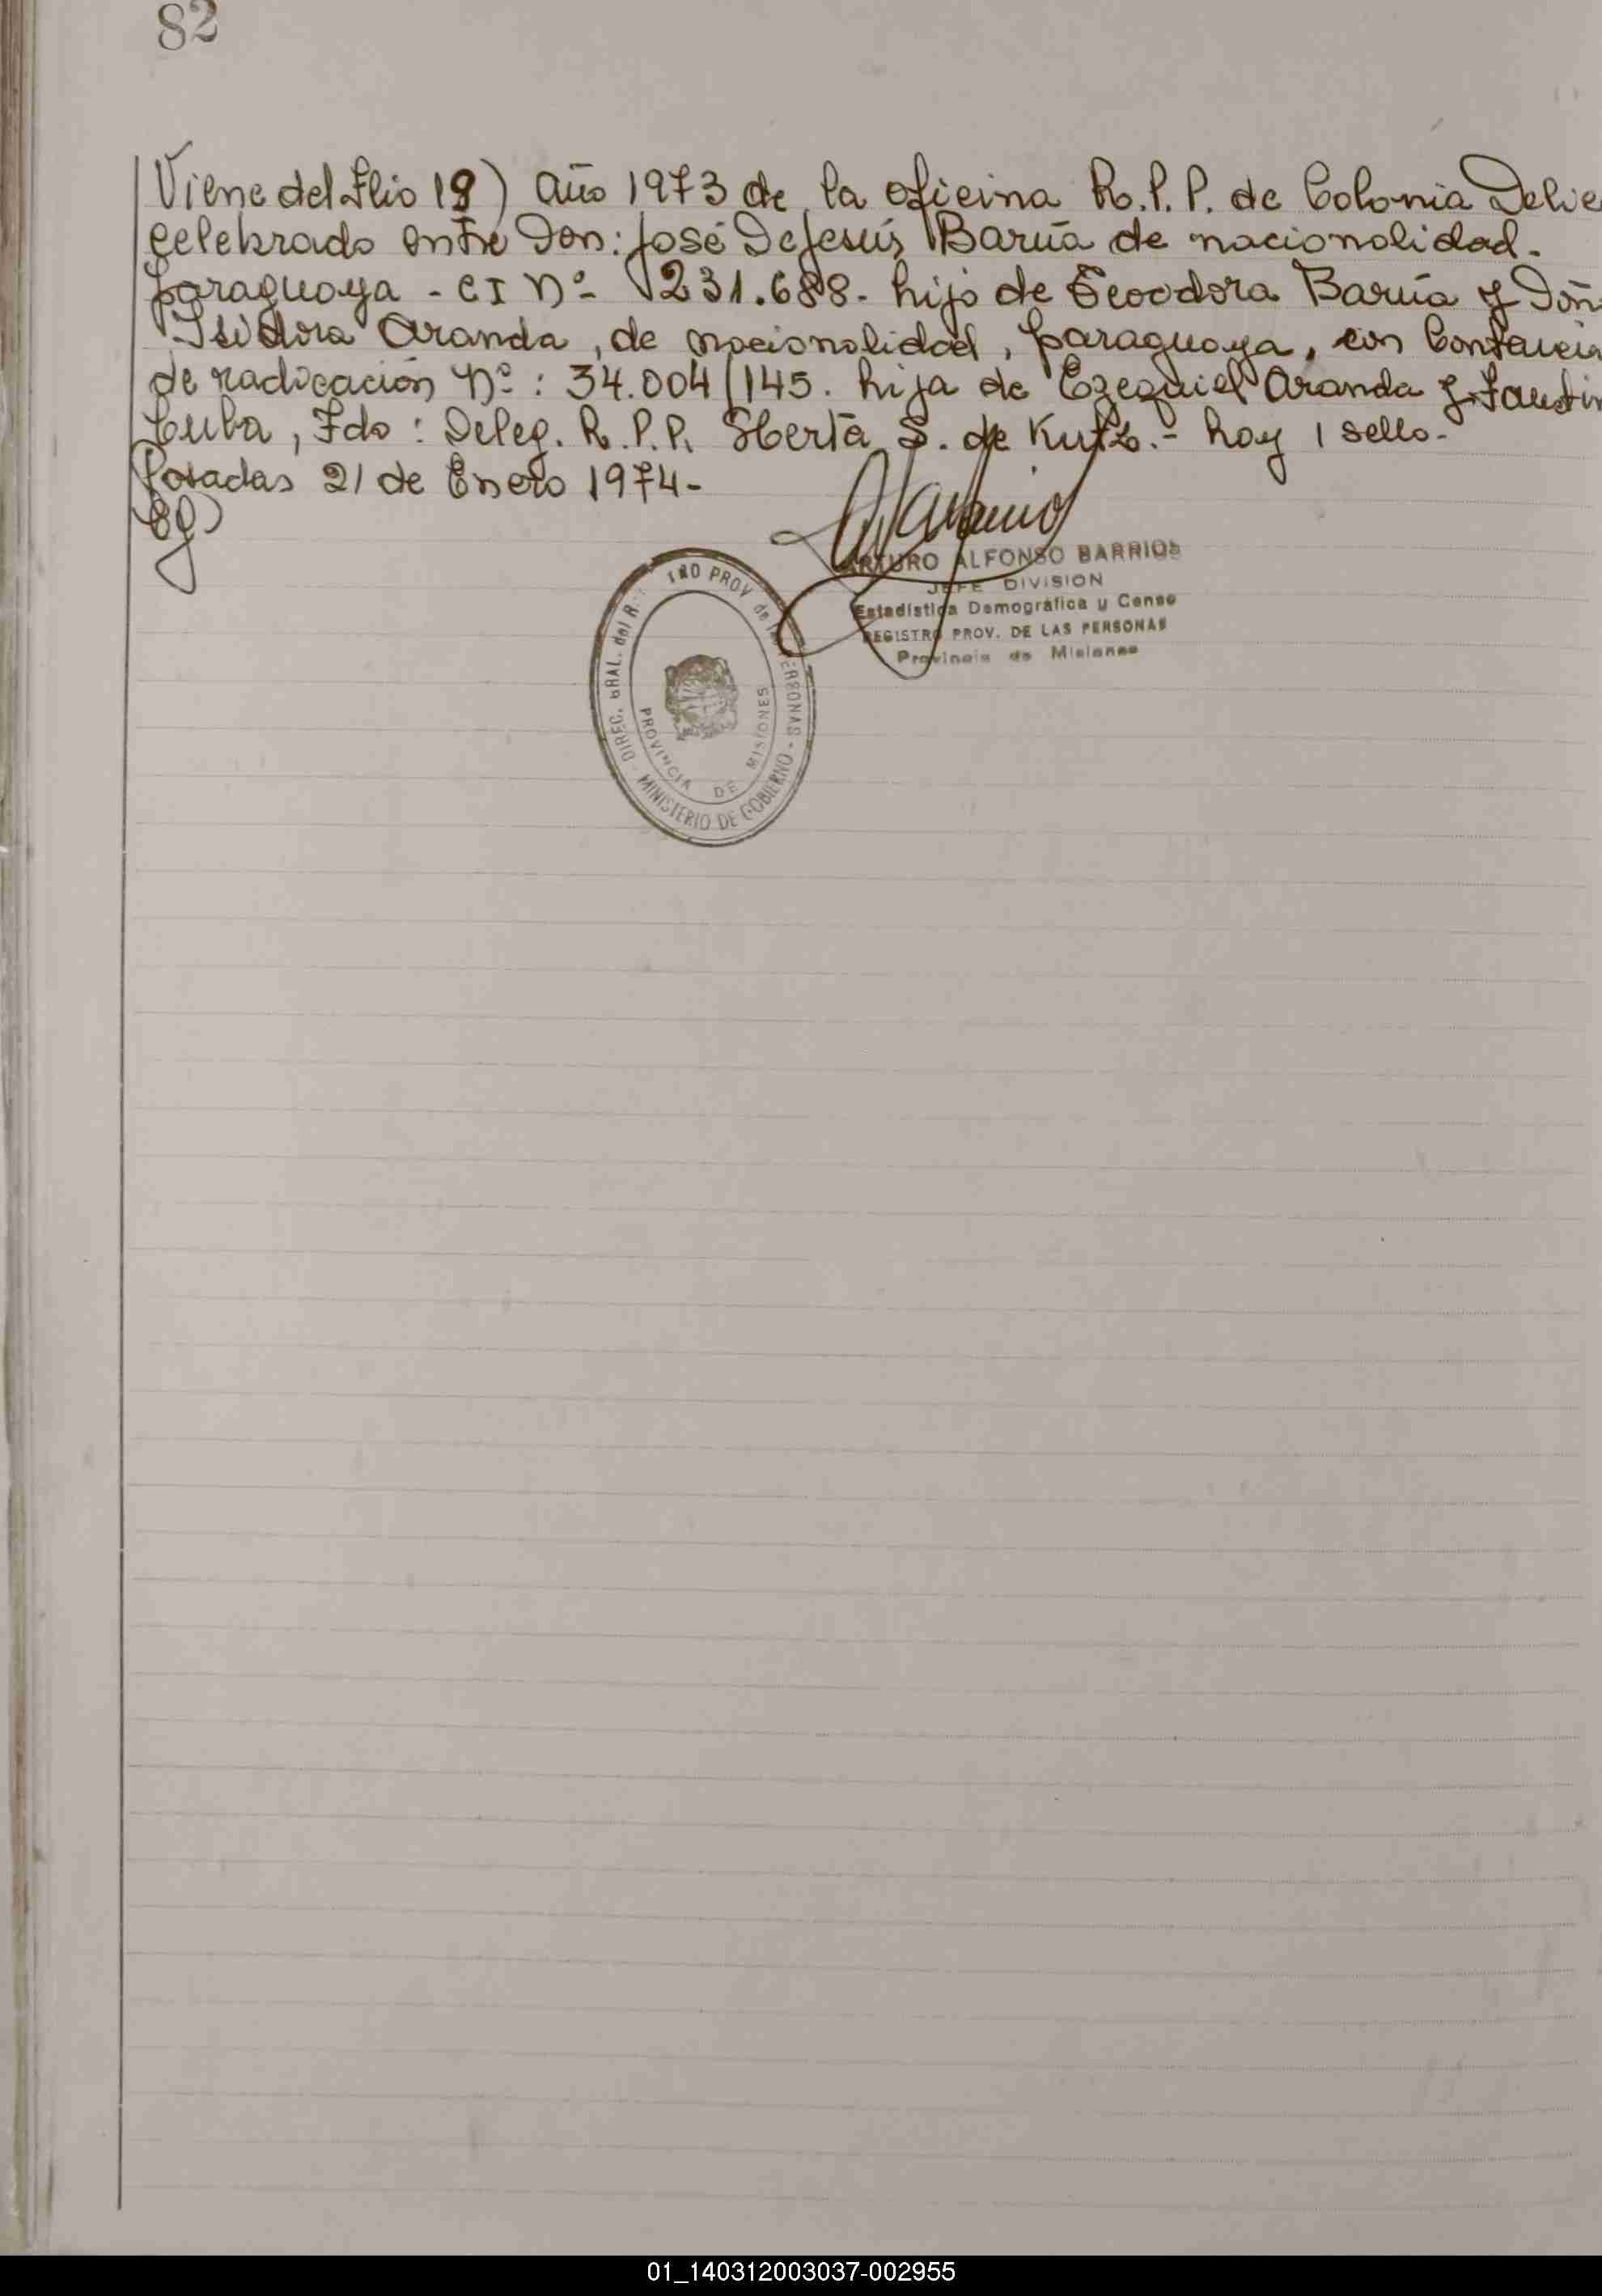 82
Viene del Flio 19) Año 1973 de la oficina R.P.P. de Colonia Delic
Celebrado entre Don: José DeJesús Barúa de nacionalidad.
paraguaya - CI Nº- 231.688. hijo de Teodora Barúa y Doñ
Isidora Aranda, de nacionalidad, paraguaya, con Contancia
de radicación Nº: 34.004/145. hija de Ezequiel Aranda y Faustin
Cuba, Fdo: Deleg. R.P.P. Herta S. de Kutz.- hay 1 sello.
Posadas 21 de Enero 1974-
ARTURO ALFONSO BARRIOS
JEFE DIVISION
Estadística Demográfica y Censo
REGISTRO PROV. DE LAS PERSONAS
Provincia de Misiones
DIREC. GRAL. del R. PROV de PERSONAS - MINISTERIO DE GOBIERNO -
PROVINCIA DE MISIONES
01_140312003037-002955